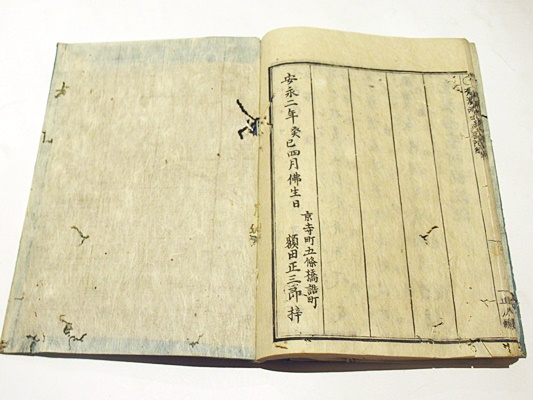 安永二年癸巳四月佛生日
京寺町五條橋詰町
額田正三郎 梓